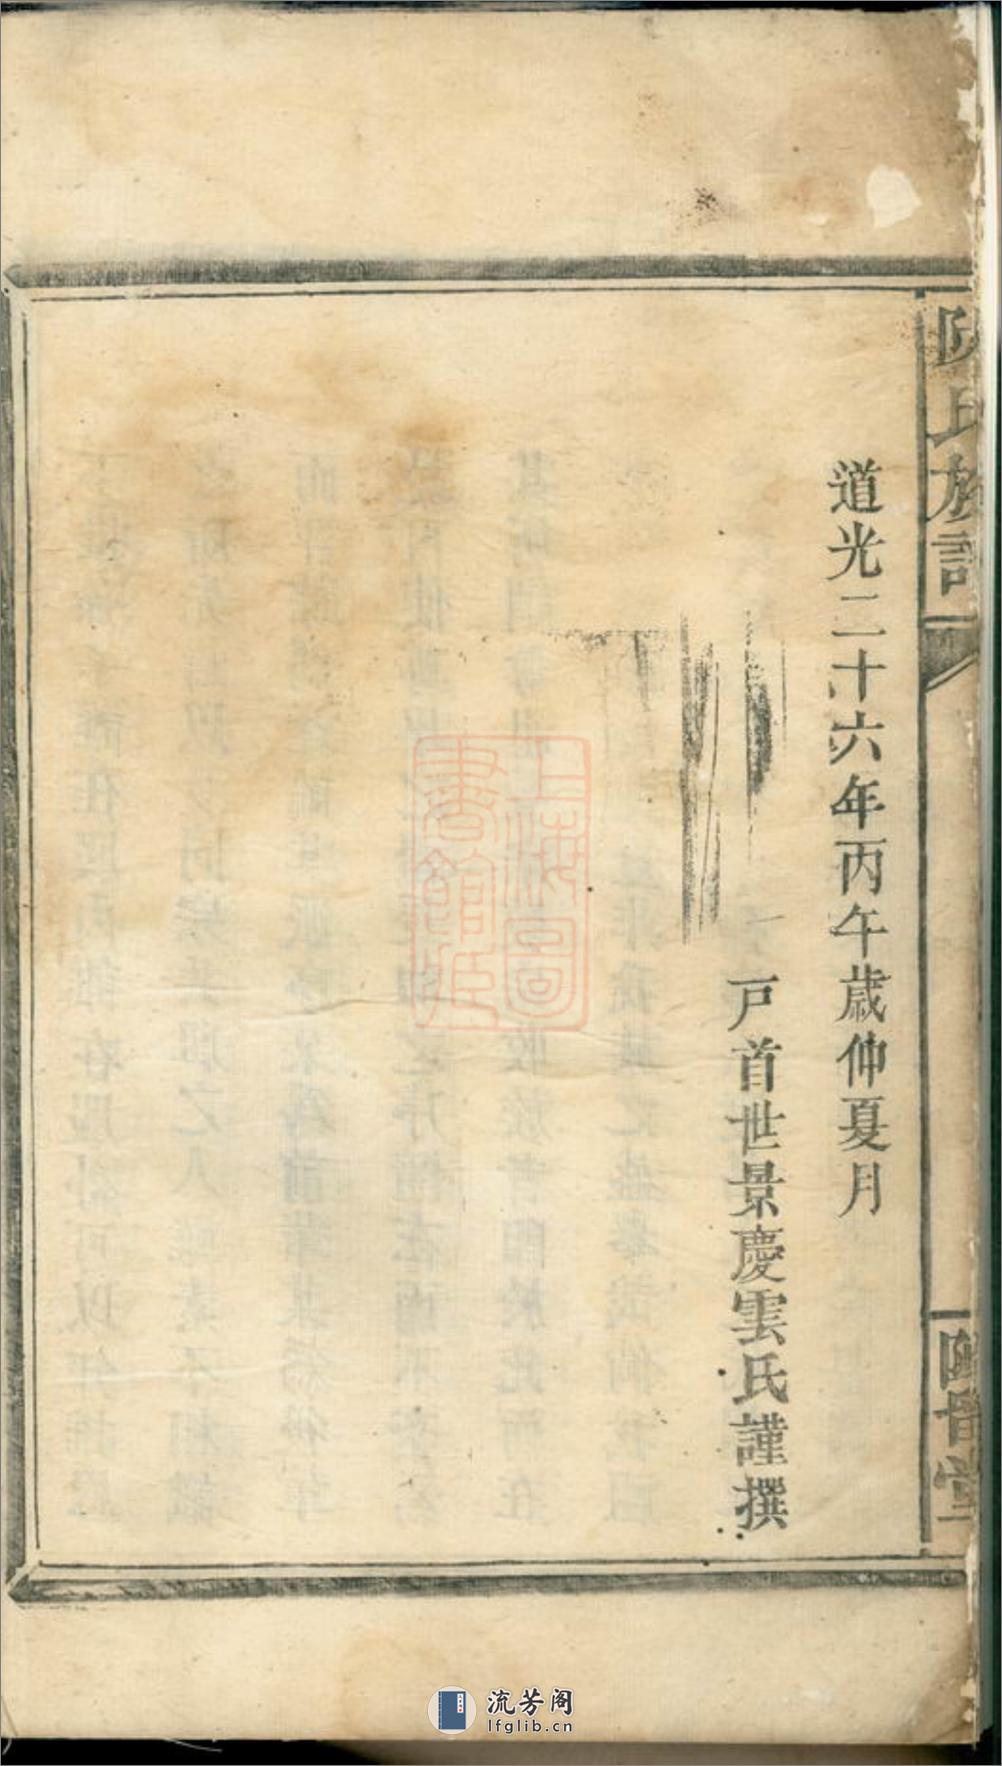 道光二十六年丙午歲仲夏月
戸首世景慶雲氏謹撰
氏族譜
堂
上海圖書館藏
流芳阁
lfglib.cn